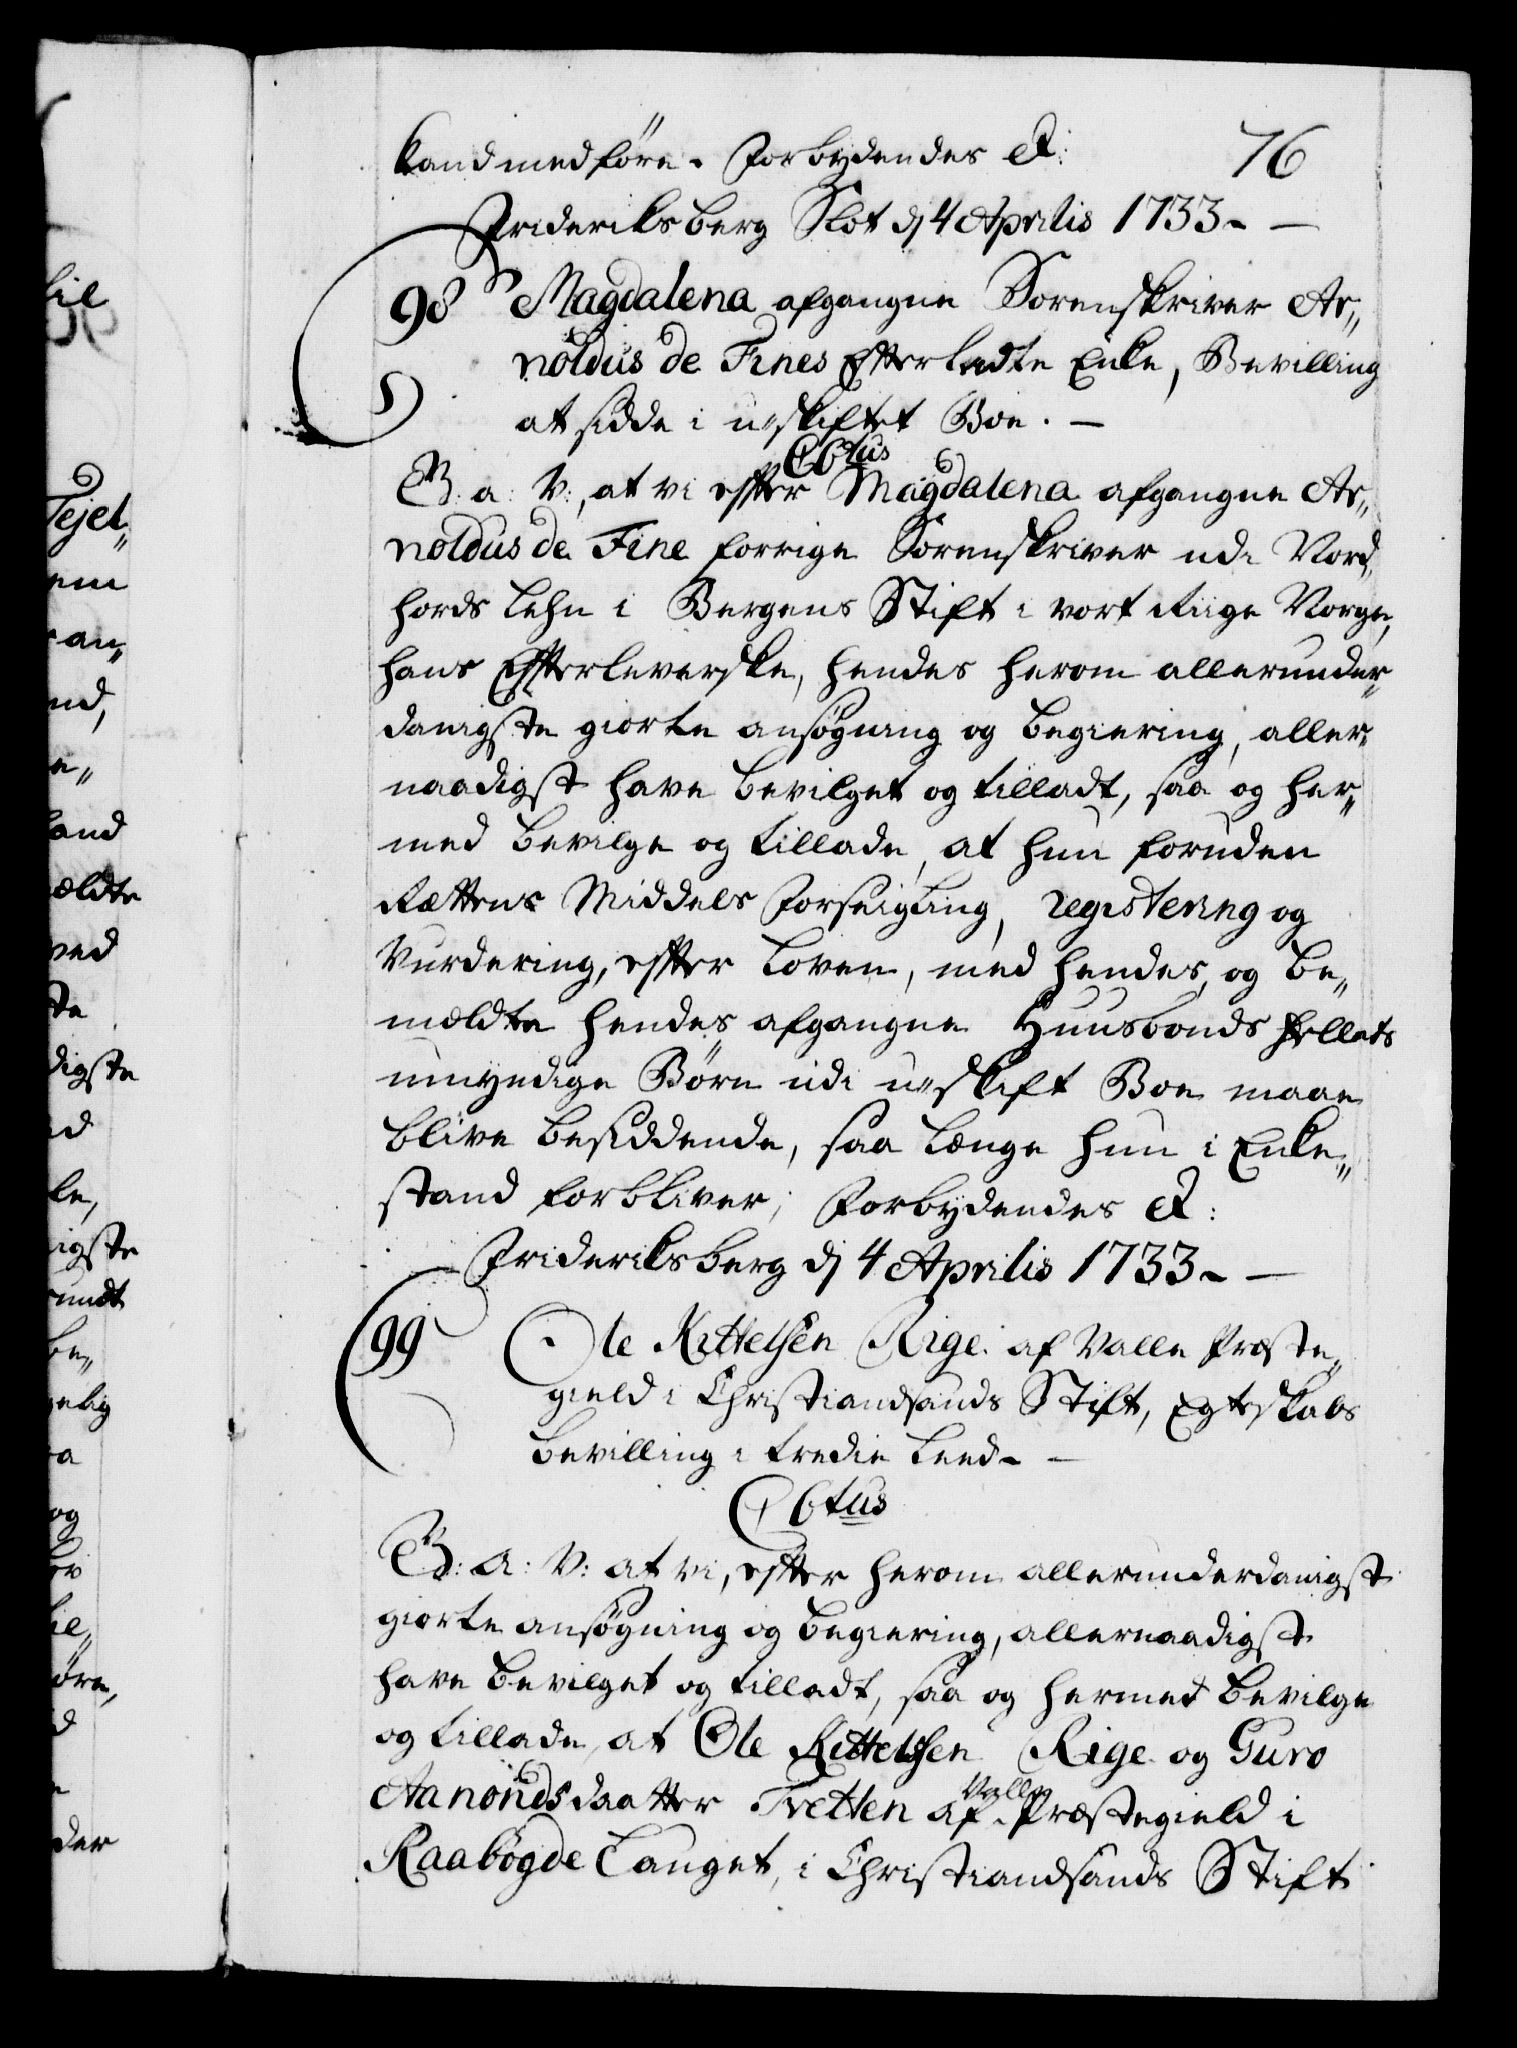 76
kand medføre. Forbydendes &:
Frideriksberg Slot dj 4 Aprilis 1733 -
98 Magdalena afgangne Sorenskriver Ar„
noldus de Fines Efterladte Enke, Bevilling
at sidde i u-skiftet Boe. -
C6tus
G: a: V:, at vi effter Magdalena afgangne Ar„
noldus de Fine forrige Sorenskriver udi Nord„
hords Lehn i Bergens Stift i vort Riige Norge,
hans Effterleverske, hendes herom allerunder„
danigste giorte ansøgning og begiering, aller„
naadigst have bevilget og tilladt, saa og her„
med bevilge og tillade, at hun foruden
Rættens Middels forseigling, registering og
Vurdering, effter Loven, med hendes og be„
meldte hendes afgangne Huusbonds felleds
umyndige Børn udi u-skift Boe maae
blive besiddende, saa længe hun i Enke„
stand forbliver; Forbydendes &:
Frideriksberg dj 4 Aprilis 1733 -
99 Ole Kittelsen Rige af Valle Præste„
gield i Christiandsands Stift, Egteskabs
bevilling i tredie Leed -
C6tus
G: A: V: at vi, effter herom allerunderdanigst
giorte ansøgning og begiering, allernaadigst
have bevilget og tilladt, saa og hermed bevilge
og tillade, at Ole Kittelsen Rige og Guro
Aanondsdaatter Tvetten af Valle Præstegield i
Raabøgde Lauget, i Christiandsands Stift
til
Tejel„
em
an„
nd,
e„
land
meldte
ved
te
digste
d
le,
igste
undt
be„
gelig
a
og
øre,
d
der